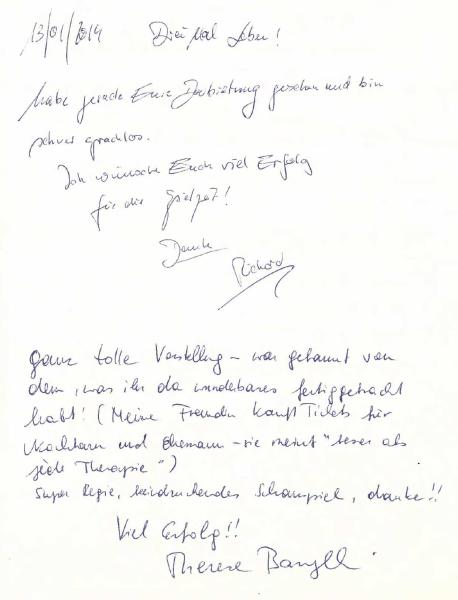 13/01/2019 Drei Mal Leben!
habe gerade Eure Darbietung gesehen und bin
schwer sprachlos.
Ich wünsche Euch viel Erfolg
für die Spielzeit!
Danke
Richard
Ganz tolle Vorstellung – war gebannt von
dem, was ihr da wunderbares fertiggebracht
habt! (Meine Freundin kauft Tickets für
Nachbarn und Ehemann – sie meint "besser als
jede Therapie")
Super Regie, beeindruckendes Schauspiel, danke!!
Viel Erfolg!!
Therese